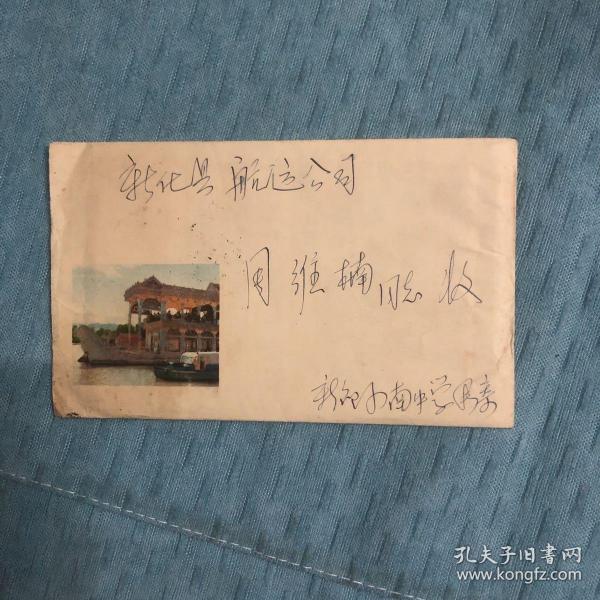 新化县航运公司
周维楠同志 收
中学
孔夫子旧书网
www.kongfz.com